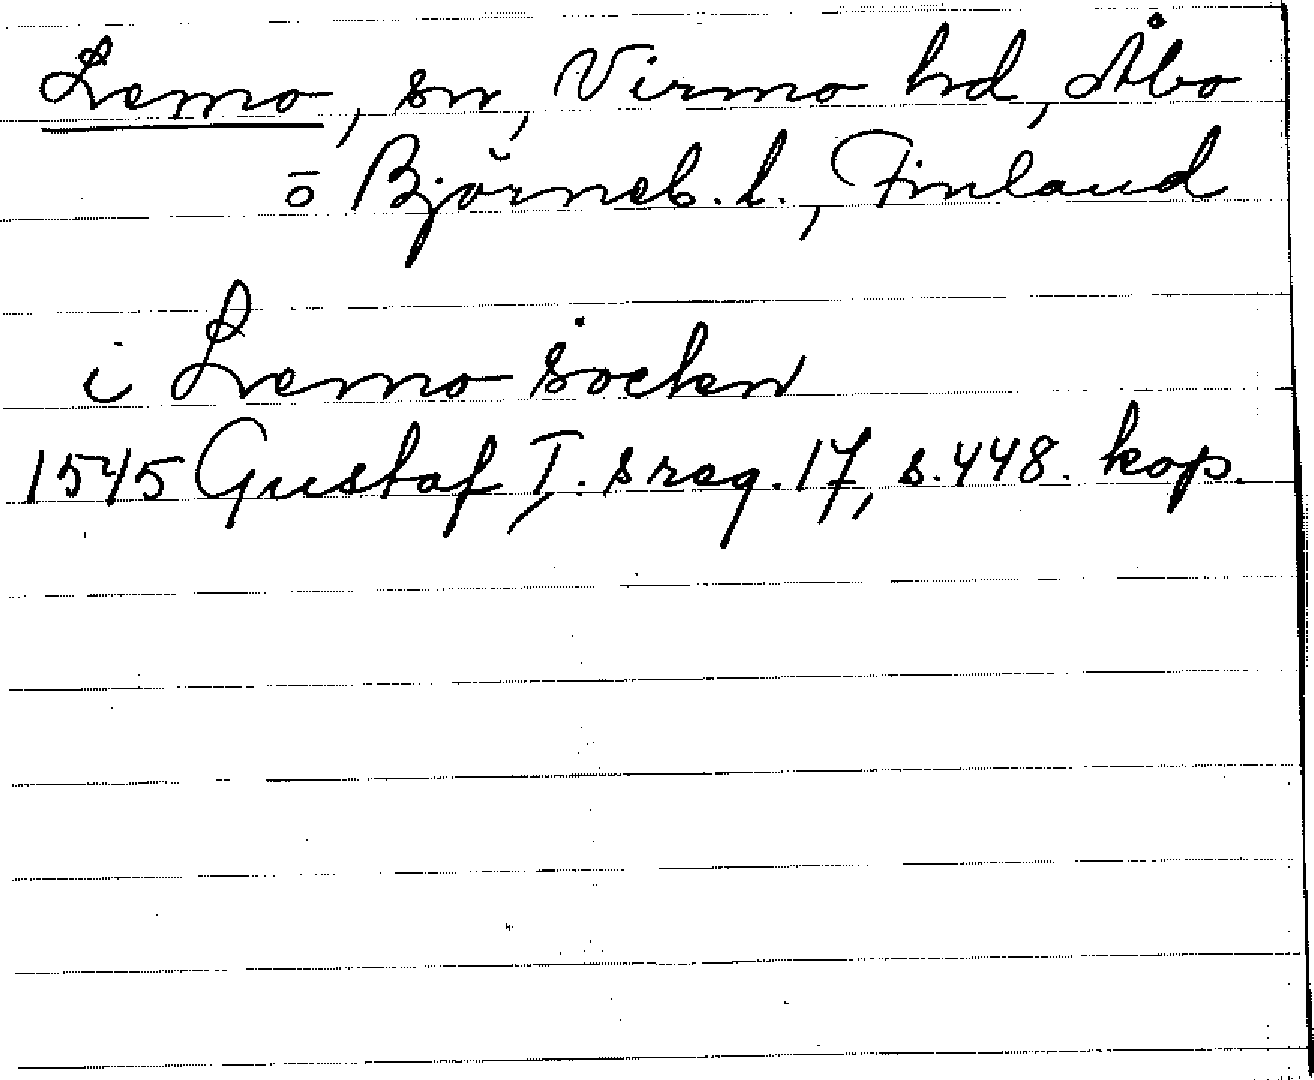 Lemo, sn, Virmo hd, Åbo
o Björneb. l., Finland
i Lemo socken
1545 Gustaf I:s reg. 17, s. 448. kop.